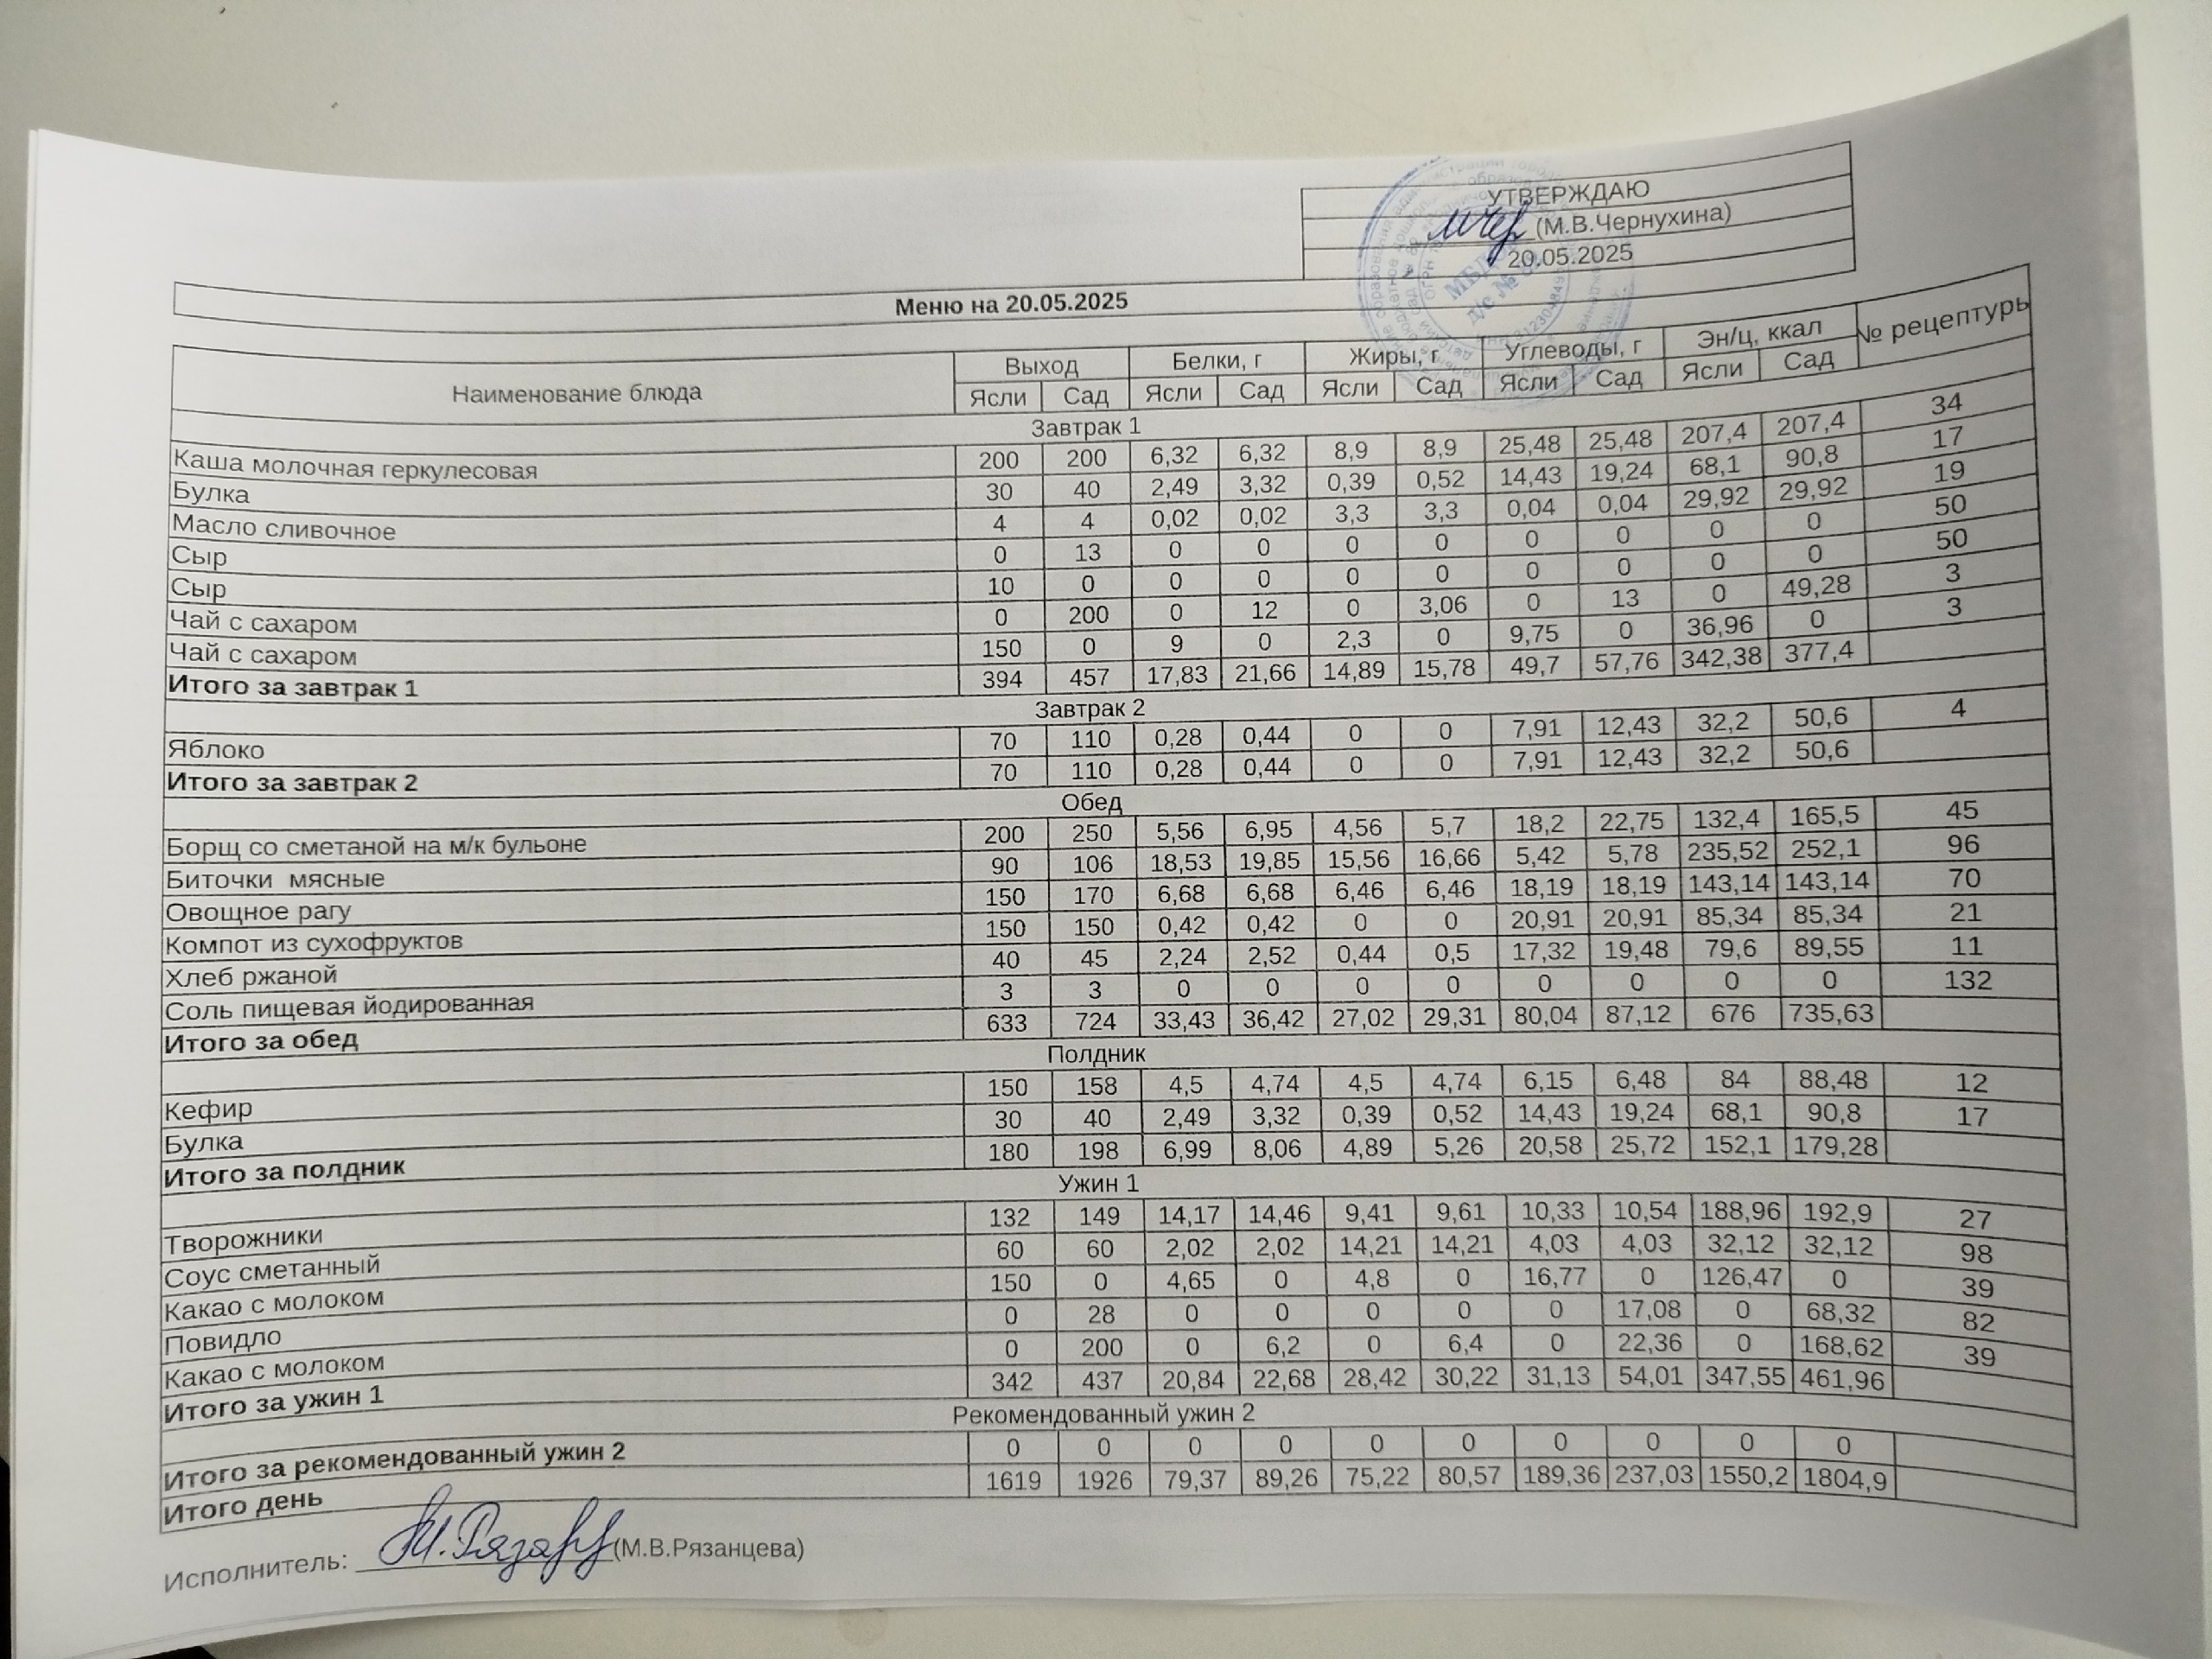 УТВЕРЖДАЮ
(М.В.Чернухина)
20.05.2025
МБДОУ
д/с №
Меню на 20.05.2025
Наименование блюда Выход Белки, г Жиры, г Углеводы, г Эн/ц, ккал № рецептуры
Ясли Сад Ясли Сад Ясли Сад Ясли Сад Ясли Сад
Завтрак 1
Каша молочная геркулесовая 200 200 6,32 6,32 8,9 8,9 25,48 25,48 207,4 207,4 34
Булка 30 40 2,49 3,32 0,39 0,52 14,43 19,24 68,1 90,8 17
Масло сливочное 4 4 0,02 0,02 3,3 3,3 0,04 0,04 29,92 29,92 19
Сыр 0 13 0 0 0 0 0 0 0 0 50
Сыр 10 0 0 0 0 0 0 0 0 0 50
Чай с сахаром 0 200 0 12 0 3,06 0 13 0 49,28 3
Чай с сахаром 150 0 9 0 2,3 0 9,75 0 36,96 0 3
Итого за завтрак 1 394 457 17,83 21,66 14,89 15,78 49,7 57,76 342,38 377,4
Завтрак 2
Яблоко 70 110 0,28 0,44 0 0 7,91 12,43 32,2 50,6 4
Итого за завтрак 2 70 110 0,28 0,44 0 0 7,91 12,43 32,2 50,6
Обед
Борщ со сметаной на м/к бульоне 200 250 5,56 6,95 4,56 5,7 18,2 22,75 132,4 165,5 45
Биточки мясные 90 106 18,53 19,85 15,56 16,66 5,42 5,78 235,52 252,1 96
Овощное рагу 150 170 6,68 6,68 6,46 6,46 18,19 18,19 143,14 143,14 70
Компот из сухофруктов 150 150 0,42 0,42 0 0 20,91 20,91 85,34 85,34 21
Хлеб ржаной 40 45 2,24 2,52 0,44 0,5 17,32 19,48 79,6 89,55 11
Соль пищевая йодированная 3 3 0 0 0 0 0 0 0 0 132
Итого за обед 633 724 33,43 36,42 27,02 29,31 80,04 87,12 676 735,63
Полдник
Кефир 150 158 4,5 4,74 4,5 4,74 6,15 6,48 84 88,48 12
Булка 30 40 2,49 3,32 0,39 0,52 14,43 19,24 68,1 90,8 17
Итого за полдник 180 198 6,99 8,06 4,89 5,26 20,58 25,72 152,1 179,28
Ужин 1
Творожники 132 149 14,17 14,46 9,41 9,61 10,33 10,54 188,96 192,9 27
Соус сметанный 60 60 2,02 2,02 14,21 14,21 4,03 4,03 32,12 32,12 98
Какао с молоком 150 0 4,65 0 4,8 0 16,77 0 126,47 0 39
Повидло 0 28 0 0 0 0 0 17,08 0 68,32 82
Какао с молоком 0 200 0 6,2 0 6,4 0 22,36 0 168,62 39
Итого за ужин 1 342 437 20,84 22,68 28,42 30,22 31,13 54,01 347,55 461,96
Рекомендованный ужин 2
Итого за рекомендованный ужин 2 0 0 0 0 0 0 0 0 0 0
Итого день 1619 1926 79,37 89,26 75,22 80,57 189,36 237,03 1550,2 1804,9
Исполнитель: (М.В.Рязанцева)